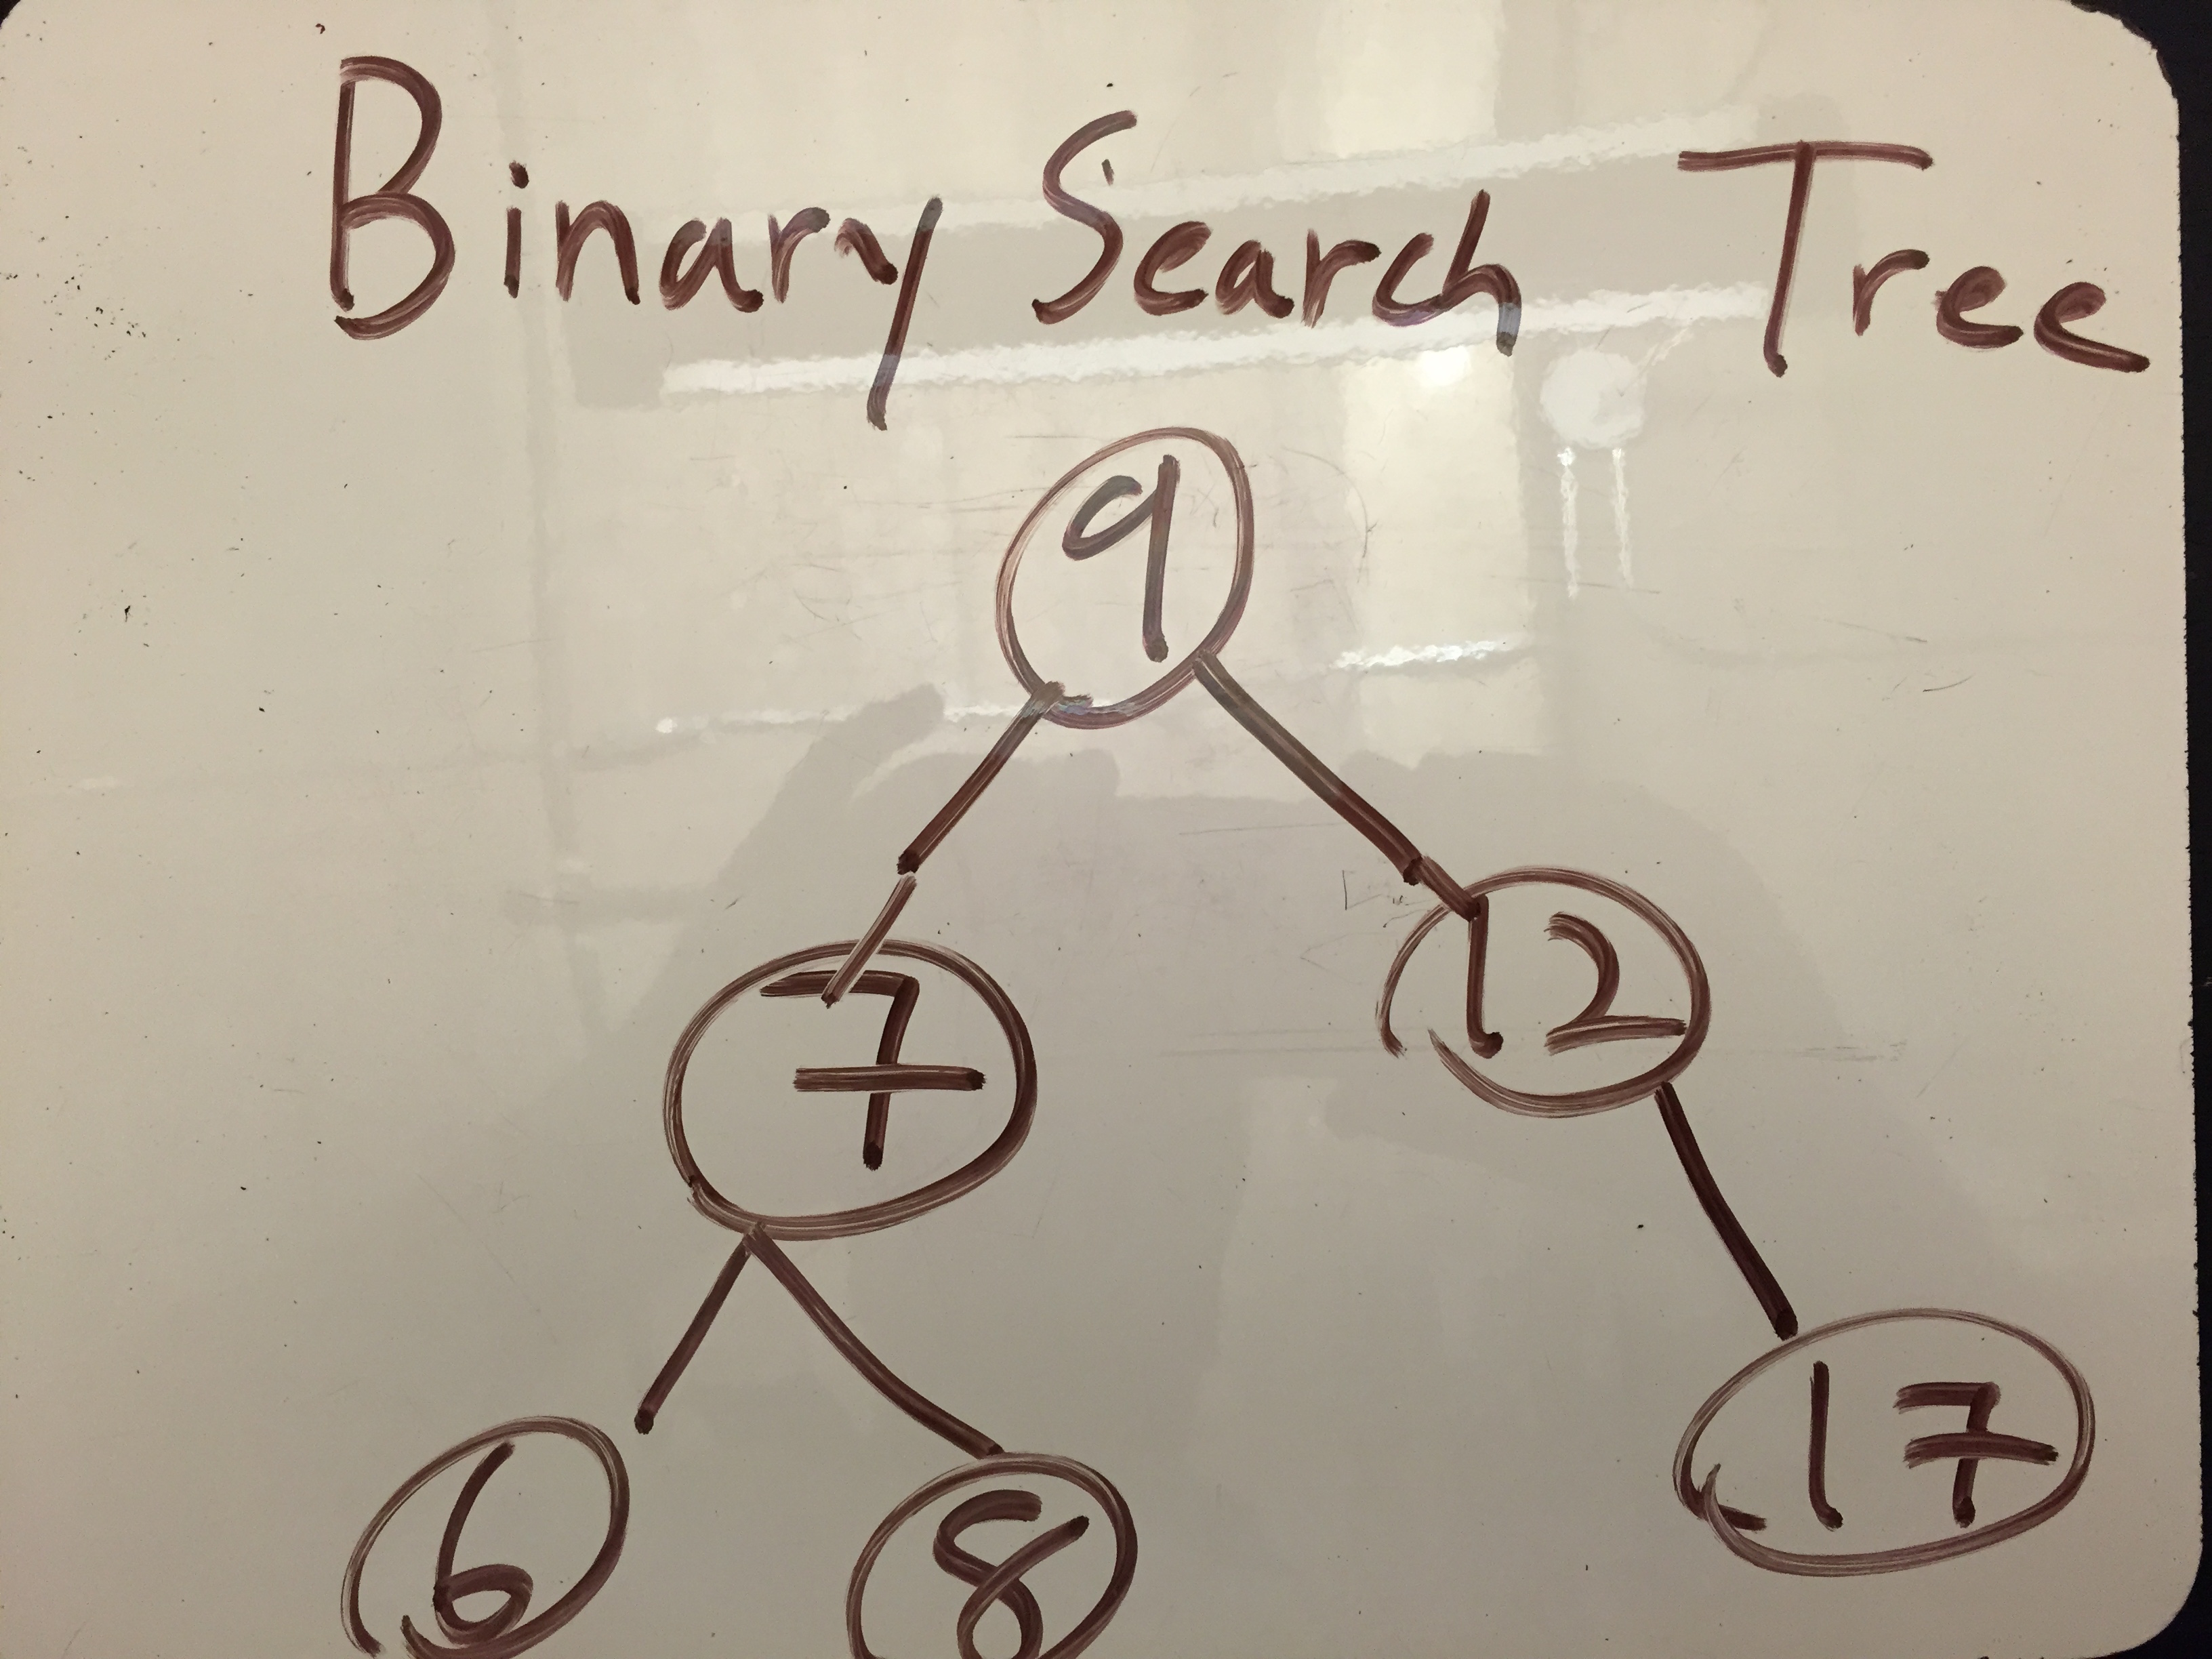 Binary Search Tree
9
7 12
6 8 17